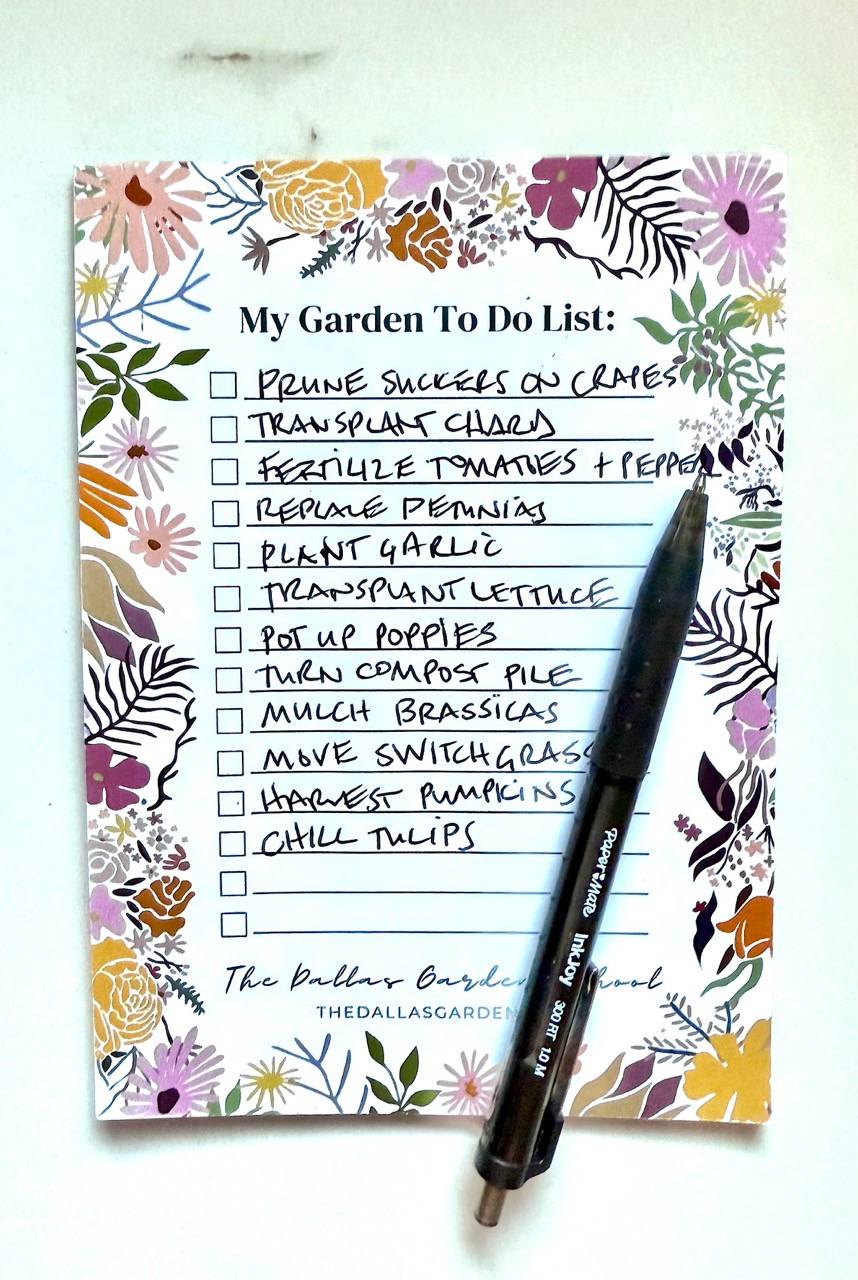 My Garden To Do List:
PRUNE SUCKERS ON CRAPES
TRANSPLANT CHARD
FERTILIZE TOMATOES + PEPPER
REPLACE PETUNIAS
PLANT GARLIC
TRANSPLANT LETTUCE
POT UP POPPIES
TURN COMPOST PILE
MULCH BRASSICAS
MOVE SWITCHGRASS
HARVEST PUMPKINS
CHILL TULIPS
The Dallas Garden School
THEDALLASGARDEN
Paper Mate InkJoy 300 RT 1.0 M